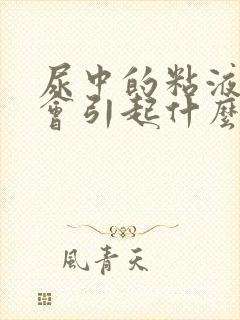 尿中的粘液
會引起什麼
風青天